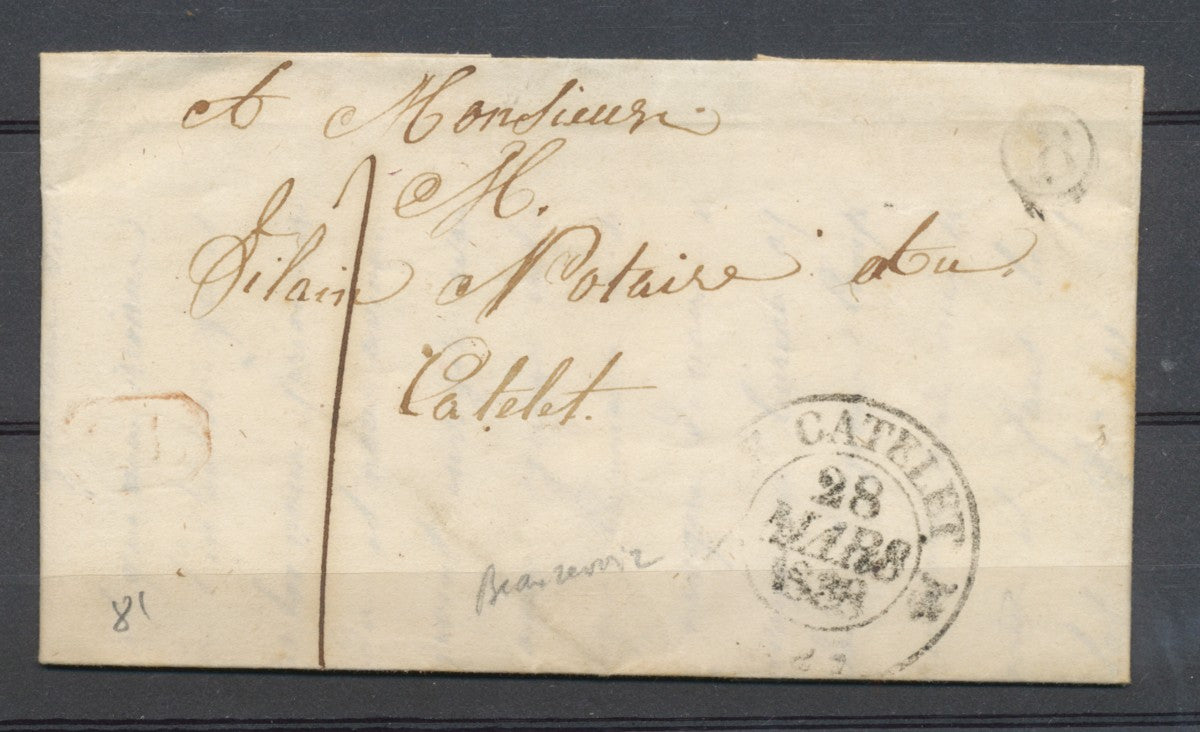 A Monsieur
M.
Filain Notaire au
Catelet.
B
CATELET
28
MARS
1838
Beaurevoir
8'